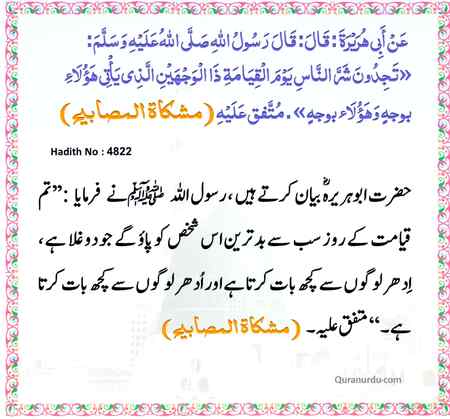 عَنْ أَبِي هُرَيْرَةَ : قَالَ: قَالَ رَسُولُ اللهِ صَلَّى اللهُ عَلَيْهِ وَسَلَّمَ:
«تَجِدُونَ شَرَّ النَّاسِ يَوْمَ الْقِيَامَةِ ذَا الْوَجْهَيْنِ الَّذِي يَأْتِي هَؤُلَاءِ
بِوَجْهٍ وَهَؤُلَاءِ بِوَجْهٍ». مُتَّفق عَلَيْهِ (مشكاة المصابيح)
Hadith No : 4822
حضرت ابو ہریرہؓ بیان کرتے ہیں ، رسول اللہ ﷺ نے فرمایا :”تم
قیامت کے روز سب سے بدترین اس شخص کو پاؤ گے جو دوغلا ہے ،
اِدھر لوگوں سے کچھ بات کرتا ہے اور اُدھر لوگوں سے کچھ بات کرتا
ہے ۔“ متفق علیہ ۔ (مشكاة المصابيح)
Quranurdu-com